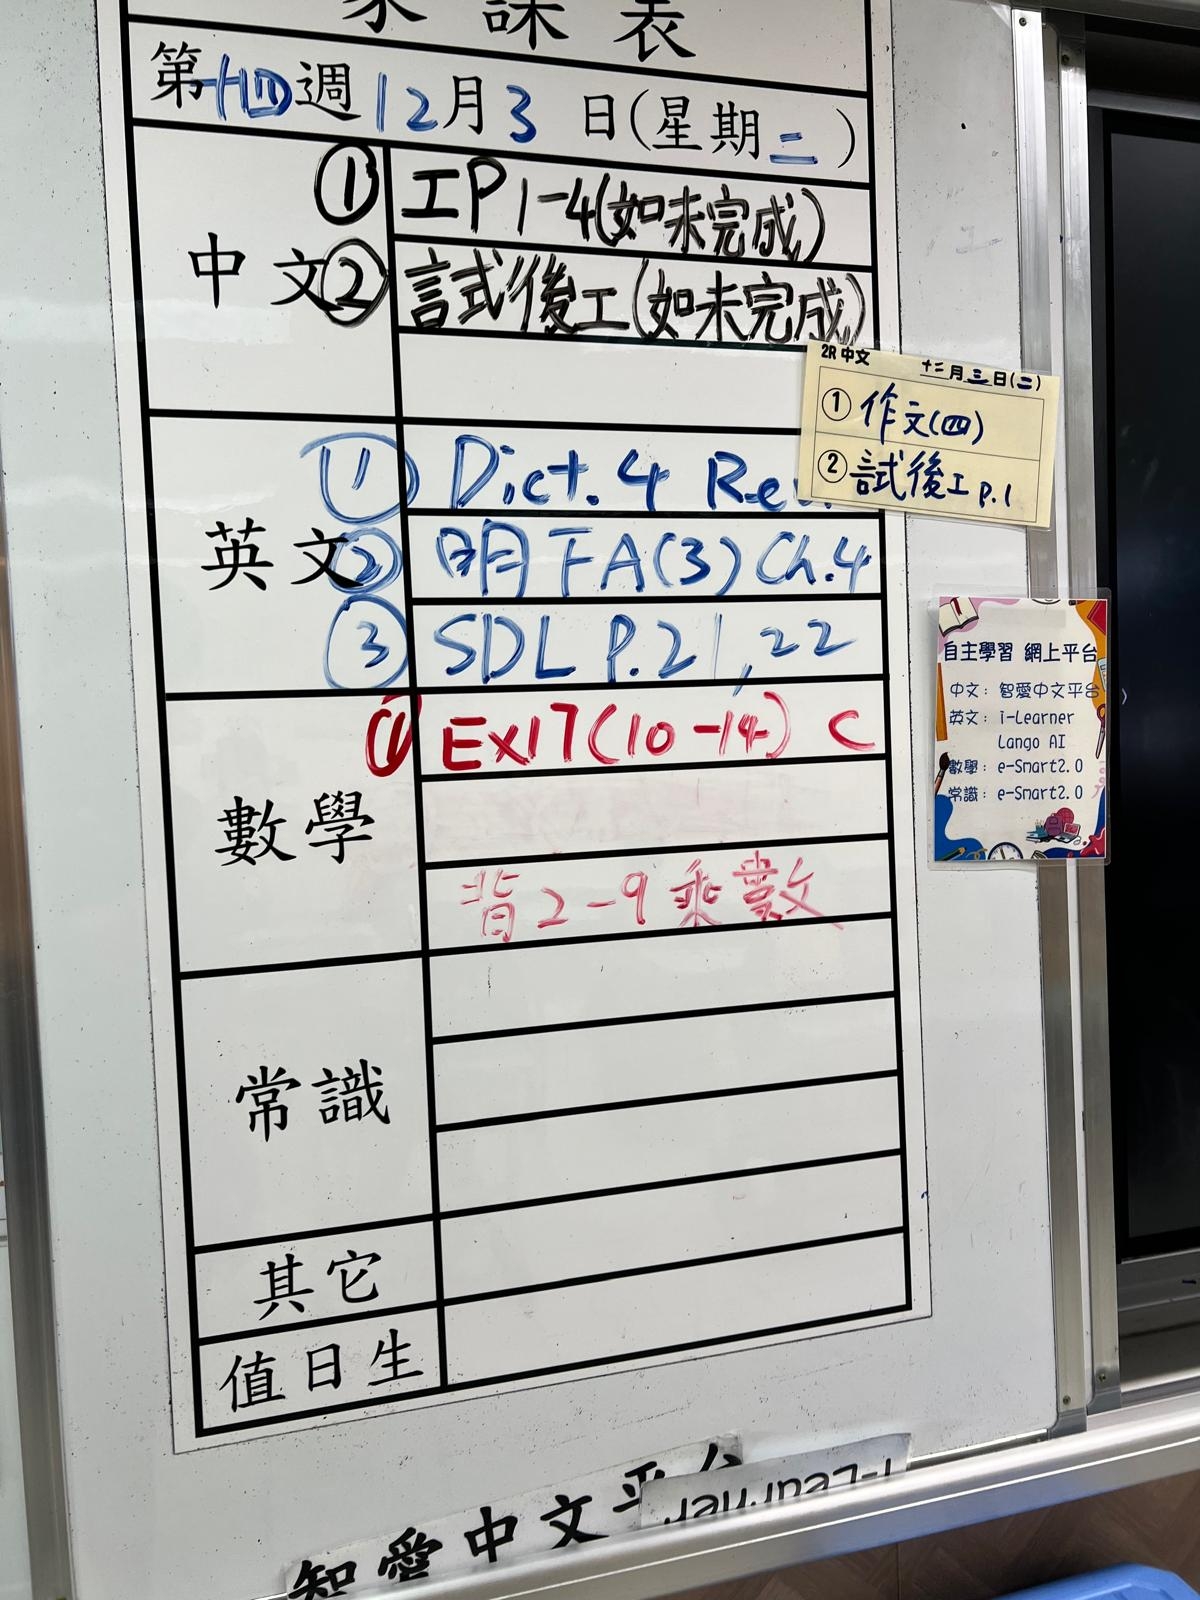 家課表
第十四週12月3日(星期二)
中文
① 工P1-4(如未完成)
② 試後工(如未完成)
2R 中文 十二月三日(二)
① 作文(四)
② 試後工 p.1
英文
① Dict.4 Rev.
② 明 下A(3) Ch.4
③ SDL P.21,22
數學
① Ex17(10-14) C
背2-9乘數
常識
其它
值日生
自主學習 網上平台
中文：智愛中文平台
英文：i-Learner
Lango AI
數學：e-Smart2.0
常識：e-Smart2.0
智愛中文平台
i-Learner